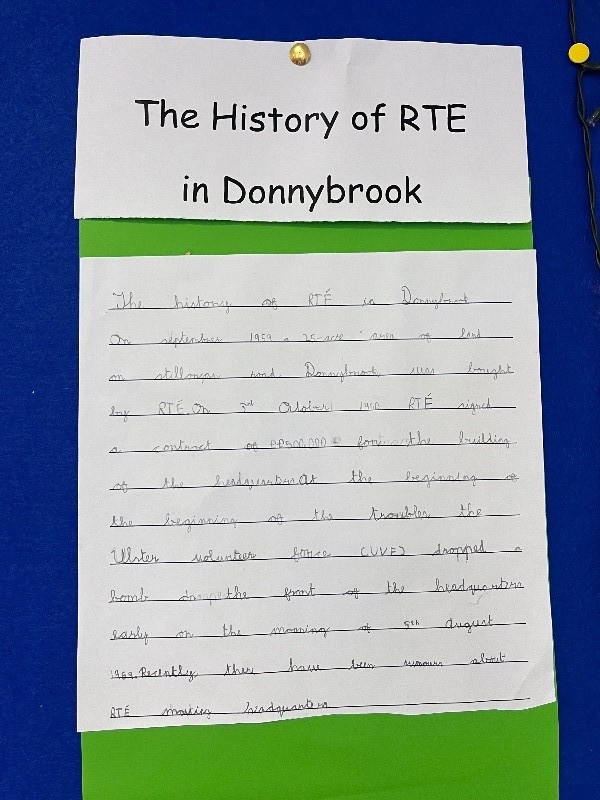 The History of RTE
in Donnybrook
The history of RTÉ in Donnybrook
On september 1959 a 25-acre area of land
on stillorgan road, Donnybrook was bought
by RTÉ. On 3rd October 1960 RTÉ signed
a contract of for the building
of the headquarters. At the beginning of
the beginning of the troubles the
Ulster volunteer force (UVF) dropped a
bomb the front of the headquarters
early on the morning of 5th August
1969. Recently there have been rumours about
RTÉ moving headquarters